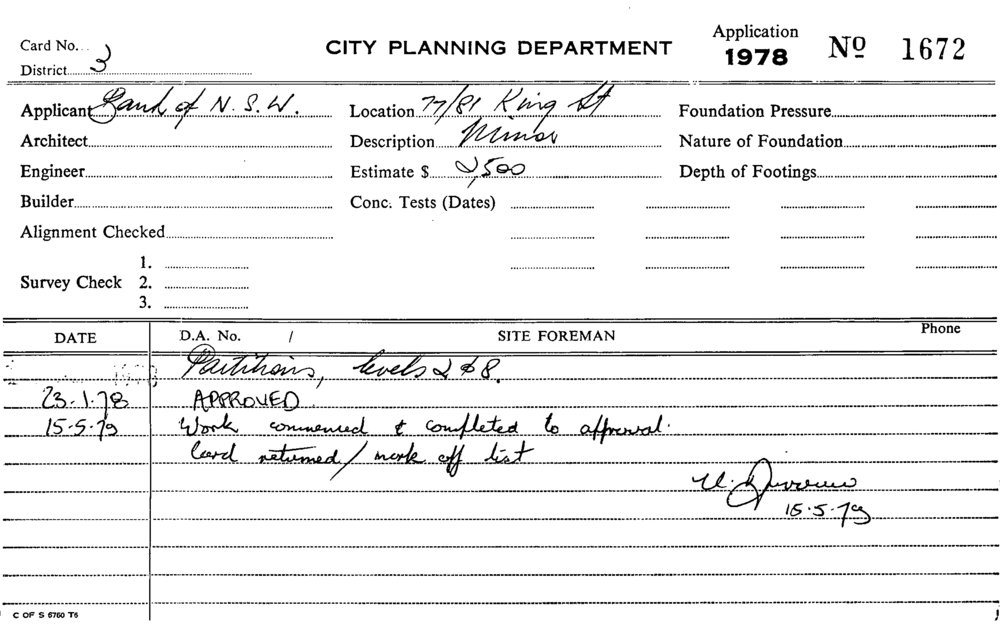 Card No. 3 CITY PLANNING DEPARTMENT Application 1978 Nº 1672
District
Applicant Bank of N.S.W. Location 77/81 King St Foundation Pressure
Architect Description Minor Nature of Foundation
Engineer Estimate $ 2,500 Depth of Footings
Builder Conc. Tests (Dates)
Alignment Checked
1.
Survey Check 2.
3.
DATE D.A. No. / SITE FOREMAN Phone
Partitions, levels 2 & 8.
23.1.78 APPROVED
15-5-79 Work commenced & completed to approval.
Card returned/mark off list
15.5.79
C OF S 6760 T6